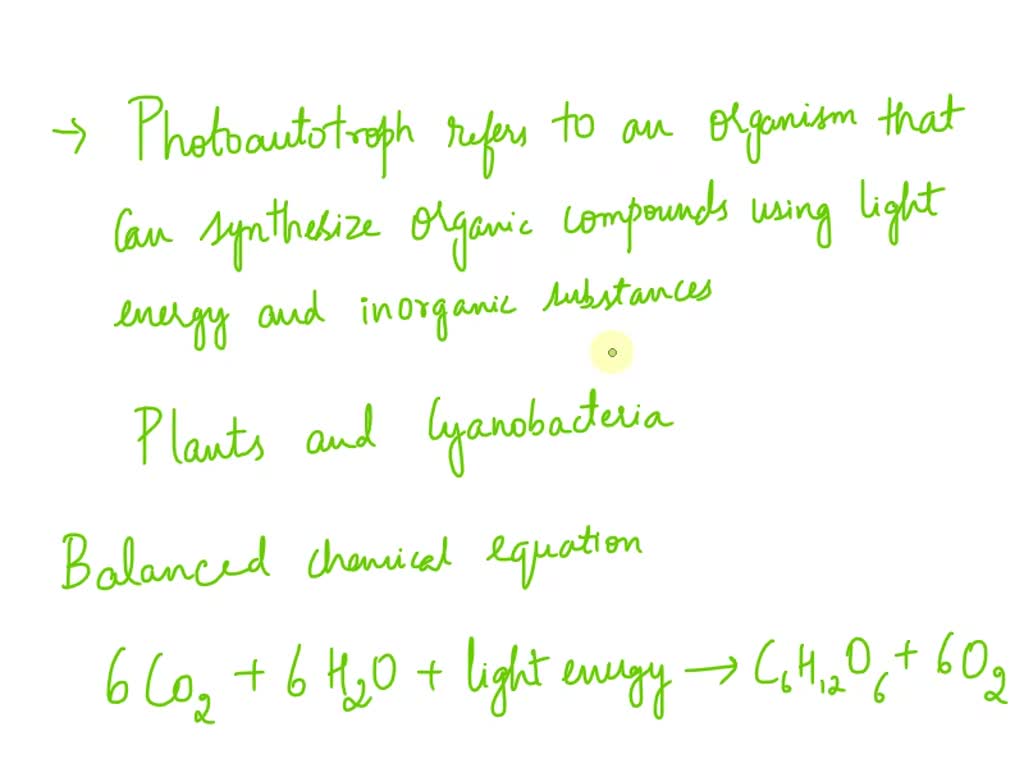 → Photoautotroph refers to an organism that
can synthesize organic compounds using light
energy and inorganic substances
Plants and Cyanobacteria
Balanced chemical equation
6CO₂ + 6H₂O + light energy → C₆H₁₂O₆ + 6O₂